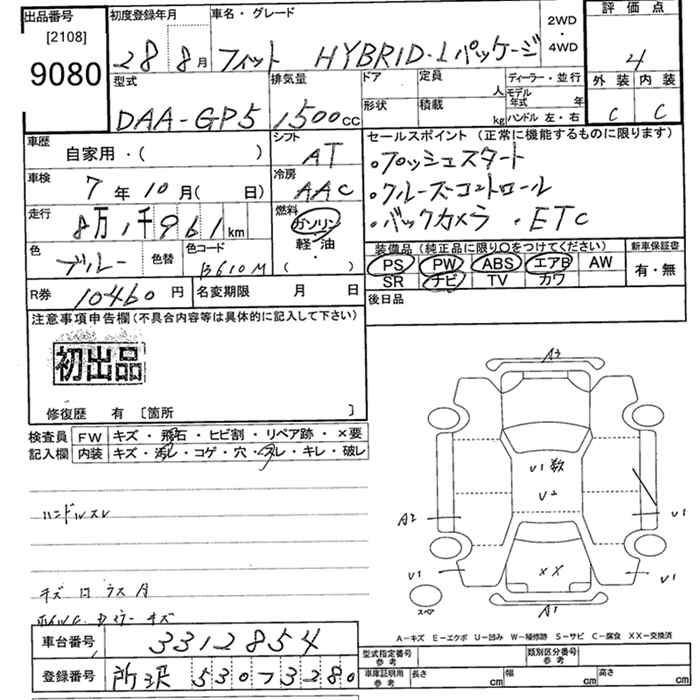 出品番号
[2108]
9080
初度登録年月
28年 8月
車名・グレード
フィット HYBRID・Lパッケージ
2WD
・
4WD
評価点
4
外装 内装
C C
型式
DAA-GP5
排気量
1500cc
ドア
形状
定員
人
積載
kg
ディーラー・並行
モデル年式 年
ハンドル 左・右
車歴
自家用・( )
シフト
AT
車検
7年10月( 日)
冷房
AAC
走行
8万1千961km
燃料
ガソリン
軽油
( ・ )
色
ブルー
色替
色コード
B610M
R券
10460円
名変期限 月 日
セールスポイント (正常に機能するものに限ります)
・プッシュスタート
・クルーズコントロール
・バックカメラ ・ETC
装備品(純正品に限り〇をつけてください)
新車保証書
PS PW ABS エアB AW
有・無
SR ナビ TV カワ
後日品
注意事項申告欄(不具合内容等は具体的に記入して下さい)
初出品
修復歴 有 [箇所 ]
検査員 FW キズ・飛石・ヒビ割・リペア跡・×要
記入欄 内装 キズ・汚レ・コゲ・穴・スレ・キレ・破レ
ハンドルスレ
A3
U1数
U2
A2
U1
U1
U1
XX
A1
スペア
A-キズ E-エクボ U-凹み W-補修跡 S-サビ C-腐食 XX-交換済
車台番号 3312854
登録番号 所沢 530 ア 3280
型式指定番号 参考
類別区分番号 参考
車庫証明用 参考
長さ cm 幅 cm 高さ cm